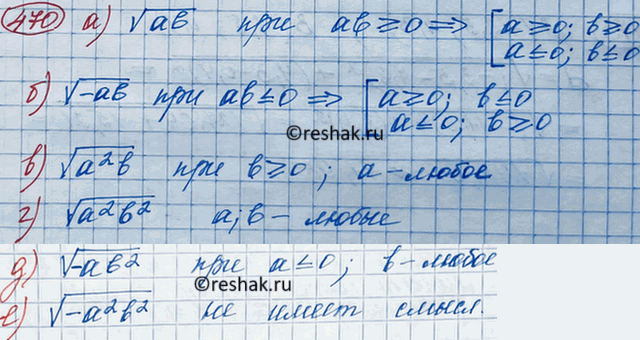 470 а) √ab при ab ≥ 0 ⇒ [ a ≥ 0; b ≥ 0
a ≤ 0; b ≤ 0
б) √-ab при ab ≤ 0 ⇒ [ a ≥ 0; b ≤ 0
a ≤ 0; b ≥ 0
©reshak.ru
в) √a²b при b ≥ 0; a - любое
г) √a²b² a; b - любые
д) √-ab² при a ≤ 0; b - любое
©reshak.ru
е) √-a²b² не имеет смысл.